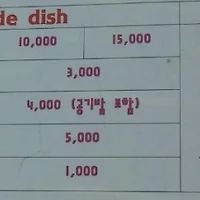 de dish
10,000 15,000
3,000
4,000 (공기밥 포함)
5,000
1,000